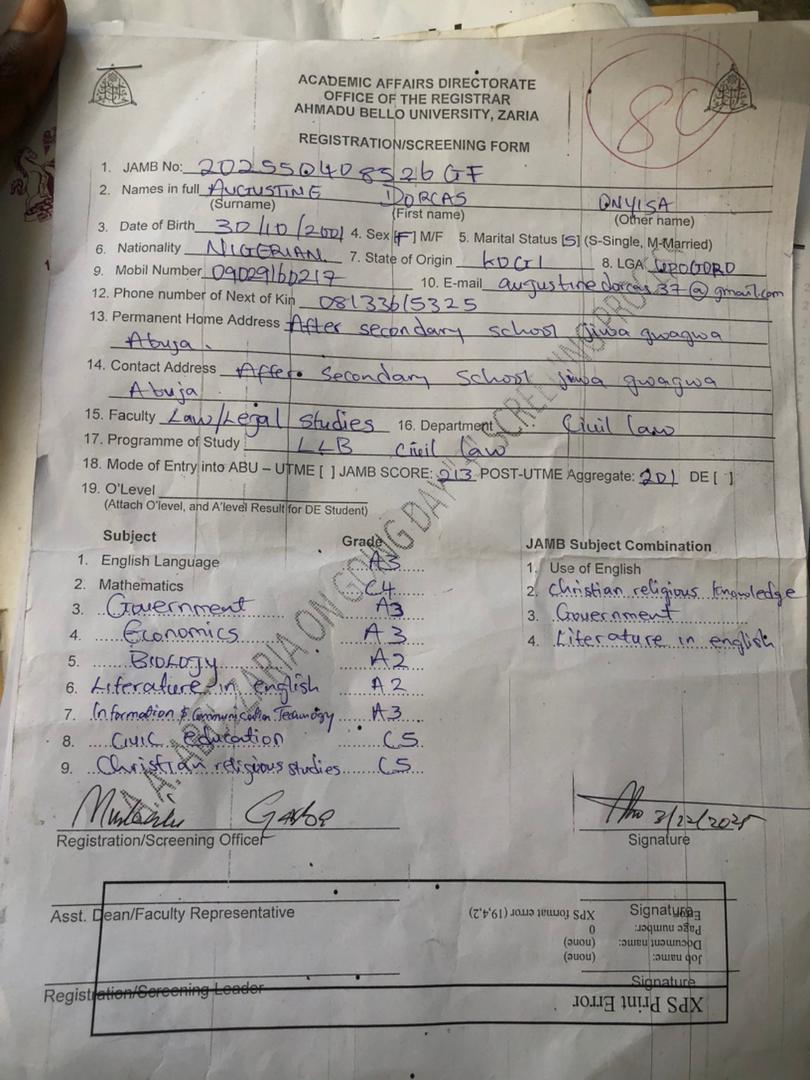 80
ACADEMIC AFFAIRS DIRECTORATE
OFFICE OF THE REGISTRAR
AHMADU BELLO UNIVERSITY, ZARIA
REGISTRATION/SCREENING FORM
1. JAMB No: 202550408526GF
2. Names in full AUGUSTINE DORCAS ONYISA
(Surname) (First name) (Other name)
3. Date of Birth 30/10/2001 4. Sex [F] M/F 5. Marital Status [S] (S-Single, M-Married)
6. Nationality NIGERIAN 7. State of Origin KOGI 8. LGA
9. Mobil Number 09029166217 10. E-mail augustinedorcas37@gmail.com
12. Phone number of Next of Kin 08133615325
13. Permanent Home Address After secondary school jiwa gwagwa
Abuja.
14. Contact Address After Secondary School jiwa gwagwa
Abuja
15. Faculty Law/Legal studies 16. Department Civil law
17. Programme of Study: LLB civil law
18. Mode of Entry into ABU – UTME [ ] JAMB SCORE: 213 POST-UTME Aggregate: 201 DE [ ]
19. O'Level
(Attach O'level, and A'level Result for DE Student)
Subject Grade
1. English Language A3
2. Mathematics C4
3. Government A3
4. Economics A3
5. BIOLOGY A2
6. Literature in english A2
7. Information & Communication Technology A3
8. CIVIC Education C5
9. Christian religious studies C5
JAMB Subject Combination
1. Use of English
2. Christian religious knowledge
3. Government
4. Literature in english
3/12/2025
Registration/Screening Officer Signature
Asst. Dean/Faculty Representative Signature
Registration/Screening Leader Signature
XPS Print Error
Job name: (none)
Document name: (none)
Page number: 0
Error: XPS format error (19,4,2)